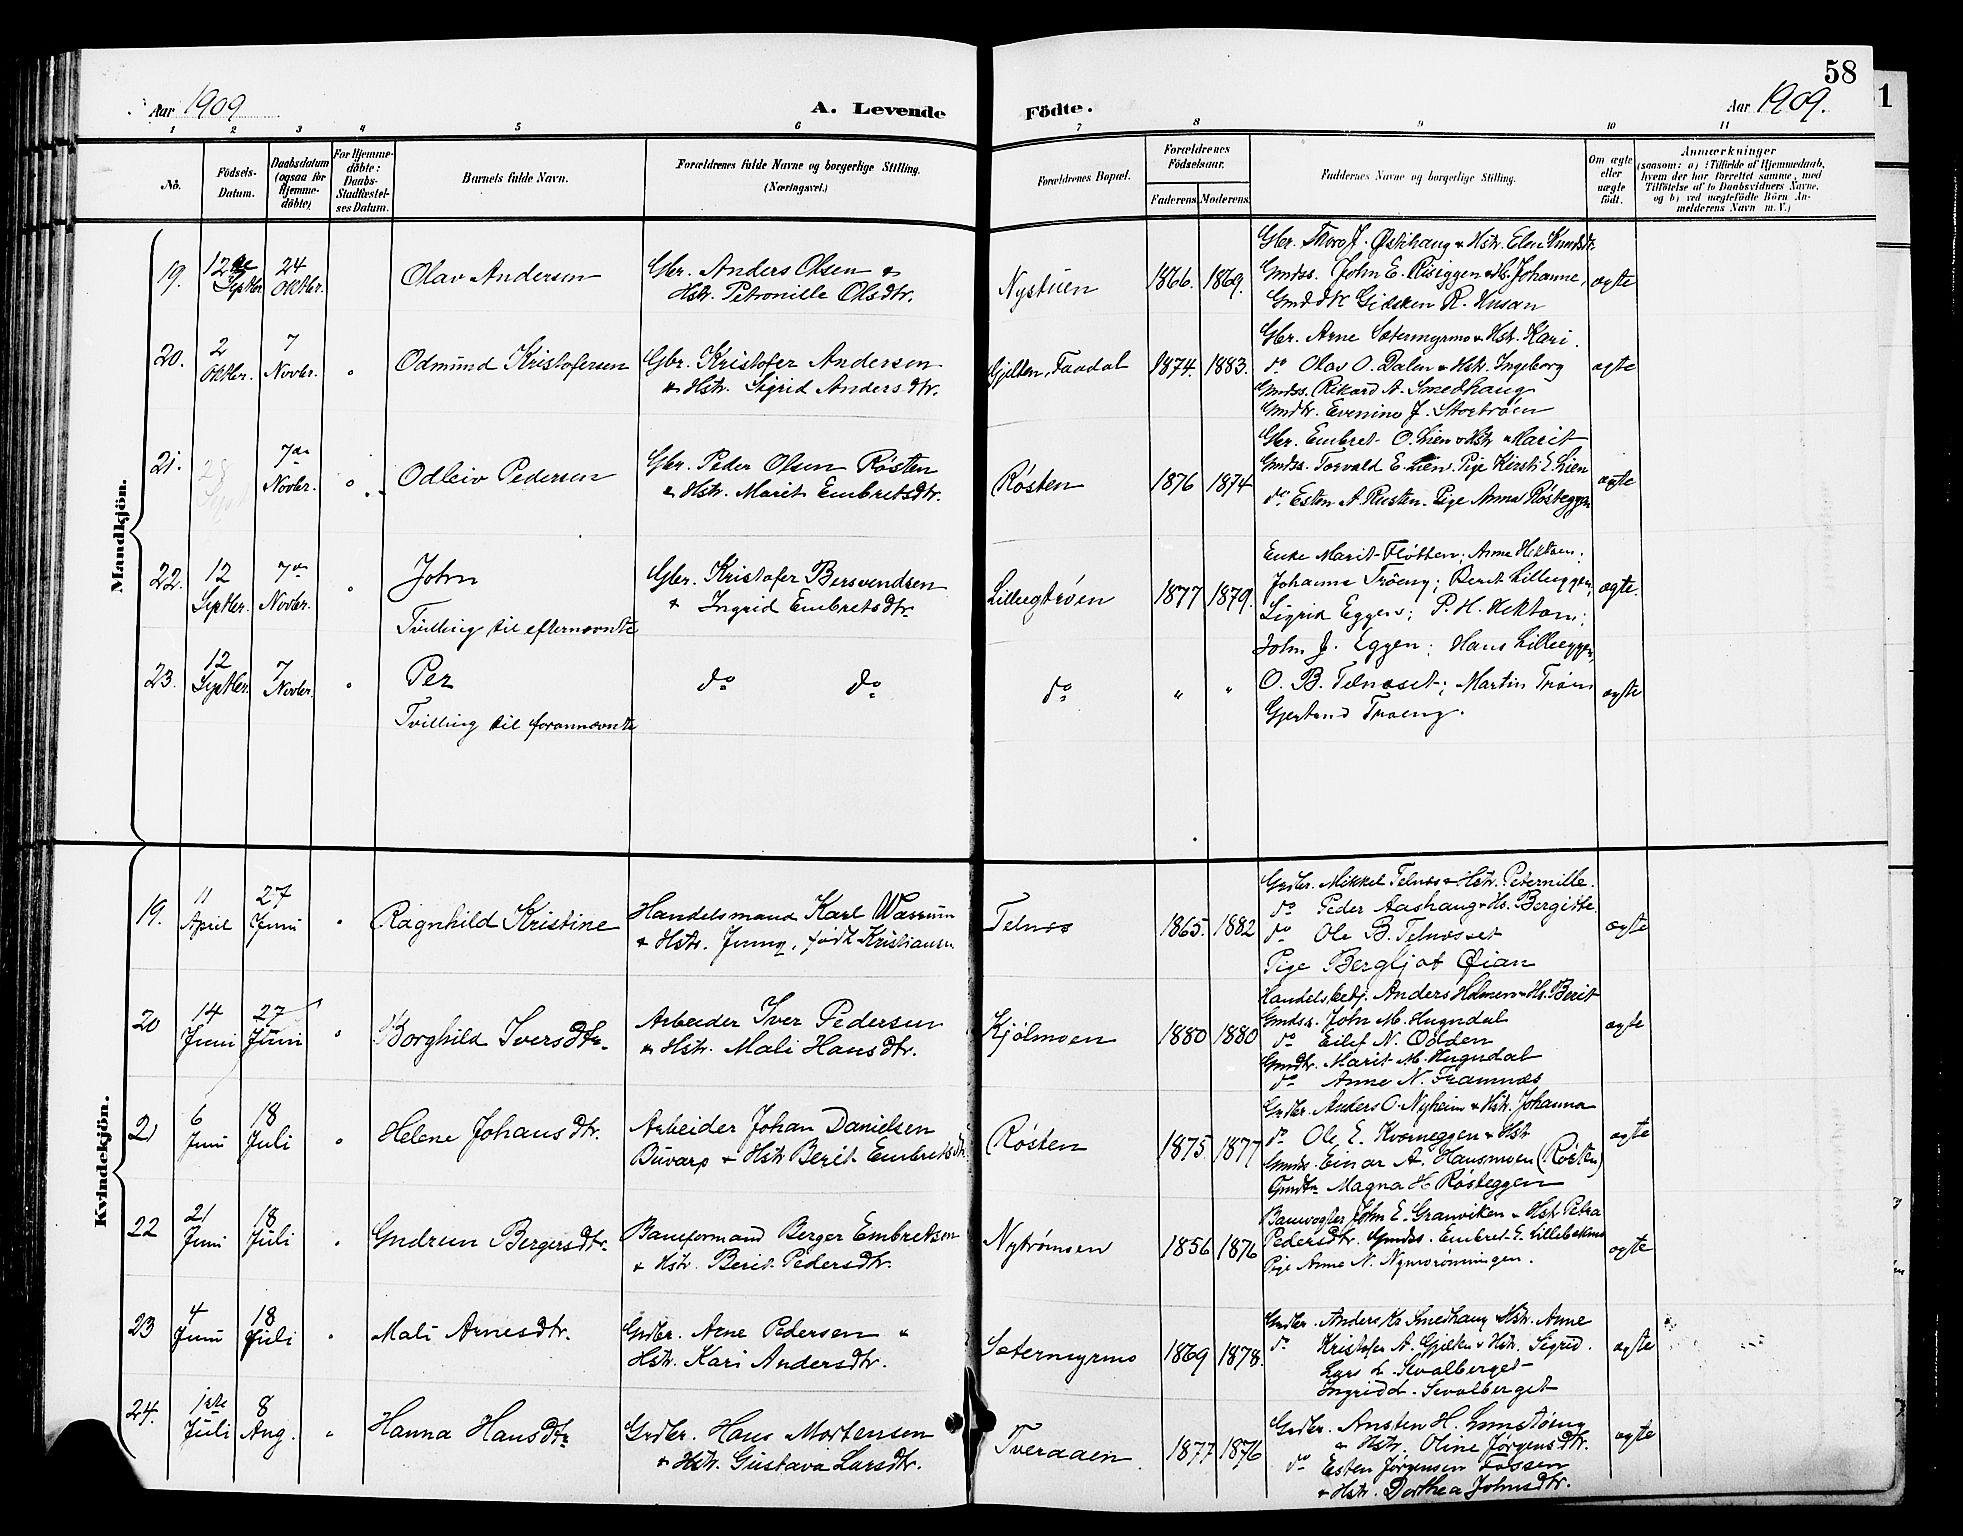 58
1
Aar 1909
A. Levende
Födte.
Aar 1909.
1 2 3 4 5 6 7 8 9 10 11
No.
Födsels-
Datum.
Daabsdatum
(ogsaa for
Hjemme-
döbte)
For Hjemme-
döbte:
Daabs-
Stadfæstel-
ses Datum.
Barnets fulde Navn.
Forældrenes fulde Navne og borgerlige Stilling.
(Næringsvei.)
Forældrenes Bopæl.
Forældrenes
Födselsaar.
Faderens
Moderens
Faddernes Navne og borgerlige Stilling.
Om ægte
eller
uægte
födt.
Anmærkninger
(saasom: a) i Tilfælde af Hjemmedaab,
hvem der har forrettet samme, med
Tilföielse af to Daabsvidners Navne,
og b) ved uægtefödte Börn An-
melderens Navn m. V.)
Mandkjön.
19.
12te
Septbr.
24
Oktbr.
Olav Andersen
Gbr. Anders Olsen &
Hstr. Petronille Olsdtr.
Nystuen
1866.
1869.
Gbr. Thoro J. Østihaug & Hstr. Elen Knudsdtr.
Gmdss. John E. Røseggen & Hs. Johanne,
Gmddtr Gidsken R. Husan
ægte
20.
2
Oktbr.
7
Novbr.
Odmund Kristofersen
Gbr. Kristofer Andersen
& Hstr. Sigrid Andersdtr.
Gjelten, Faadal
1874.
1883.
Gbr. Arne Sætermyrmo & Hstr. Kari.
do Olav O. Dalen & Hstr. Ingeborg
Gmdss. Rikard A. Smedhaug
Gmdtr. Evenine J. Stortrøen
ægte
21.
28
Sept
7de
Novbr.
Odleiv Pedersen
Gbr. Peder Olsen Røsten
& Hstr. Marit Embretsdtr.
Røsten
1876
1874
Gbr. Embret O. Lien & Hstr Marit
Gmdss. Torvald E. Lien. Pige Kirsti E. Lien
do Esten A. Rusten. Pige Anna Røsteggen
ægte
22.
12
Septbr.
7de
Novbr.
John
Tvilling til efternævnte
Gbr. Kristofer Bersvendsen
& Ingrid Embretsdtr.
Lillegtrøen
1877
1879.
Enke Marit Fløtten; Anne Hektoen;
Johanna Trøeng; Berit Lilleeggen;
Sigrid Eggen; P. H. Hektoen;
John J. Eggen; Hans Lilleeggen,
ægte.
23.
12
Septbr.
7
Novbr.
Per
Tvilling til forannævnte
do do
do
" "
O. B. Telneset; Martin Trøen
Gjertrud Troeng.
ægte
Kvindekjön.
19.
11
April
27
Juni
Ragnhild Kristine
Handelsmand Karl Wasrum
& Hstr. Jenny, født Kristiansen
Telnes
1865.
1882
Grdbr. Mikkel Telnes & Hstr. Peternille.
do Peder Aashaug & Hs. Bergitte.
do Ole B. Telnesset
Pige Bergljot Øian
ægte
20
14
Juni
27
Juni
Borghild Iversdtr.
Arbeider Iver Pedersen
& Hstr. Mali Hansdtr.
Kjølmoen
1880
1880
Handelsbetj. Anders Holmen & Hs. Berit
Gmdss. John M. Hugndal
do Eilef N. Odden
Gmdtr. Marit M. Hugndal
do Anne N. Framnæs
ægte
21
6
Juni
18
Juli
Helene Johansdtr.
Arbeider Johan Danielsen
Buvarp & Hstr Berit Embretsdtr.
Røsten
1875
1877
Grdbr. Anders O. Nyheim & Hstr. Johanna
do Ole E. Kverneggen & Hstr
Gmds. Einar A. Hansmoen (Røsten)
Gmdtr Magna H Røsteggen
ægte
22
21
Juni
18
Juli
Gudrun Bergersdtr.
Baneformand Berger Embretsen
& Hstr. Berit Pedersdtr.
Nytrømoen
1856
1876
Banevogter John E. Granviken & Hstr Petra
Pedersdtr. Gmdss. Embret E. Lillebakmo
Pige Anne N.
ægte
23
4
Juni
18
Juli
Mali Arnesdtr.
Grdbr. Arne Pedersen &
Hstr. Kari Andersdtr.
Sætermyrmo
1869
1878.
Grdbr. Anders K Smedhaug & Hstr. Anne
do Kristofer A. Gjelten & Hstr. Sigrid.
Lars L. Sevalberget
Ingrid L. Sevalberget
ægte
24.
1ste
Juli
8
Aug.
Hanna Hansdtr
Grdbr. Hans Mortensen
& Hstr. Gustava Larsdtr.
Tveraaen
1877
1876
Grdbr. Ansten H.
& Hstr. Oline Jørgensdtr.
do Esten Jørgensen Fossen
& Hstr. Dorthea Johnsdtr.
ægte